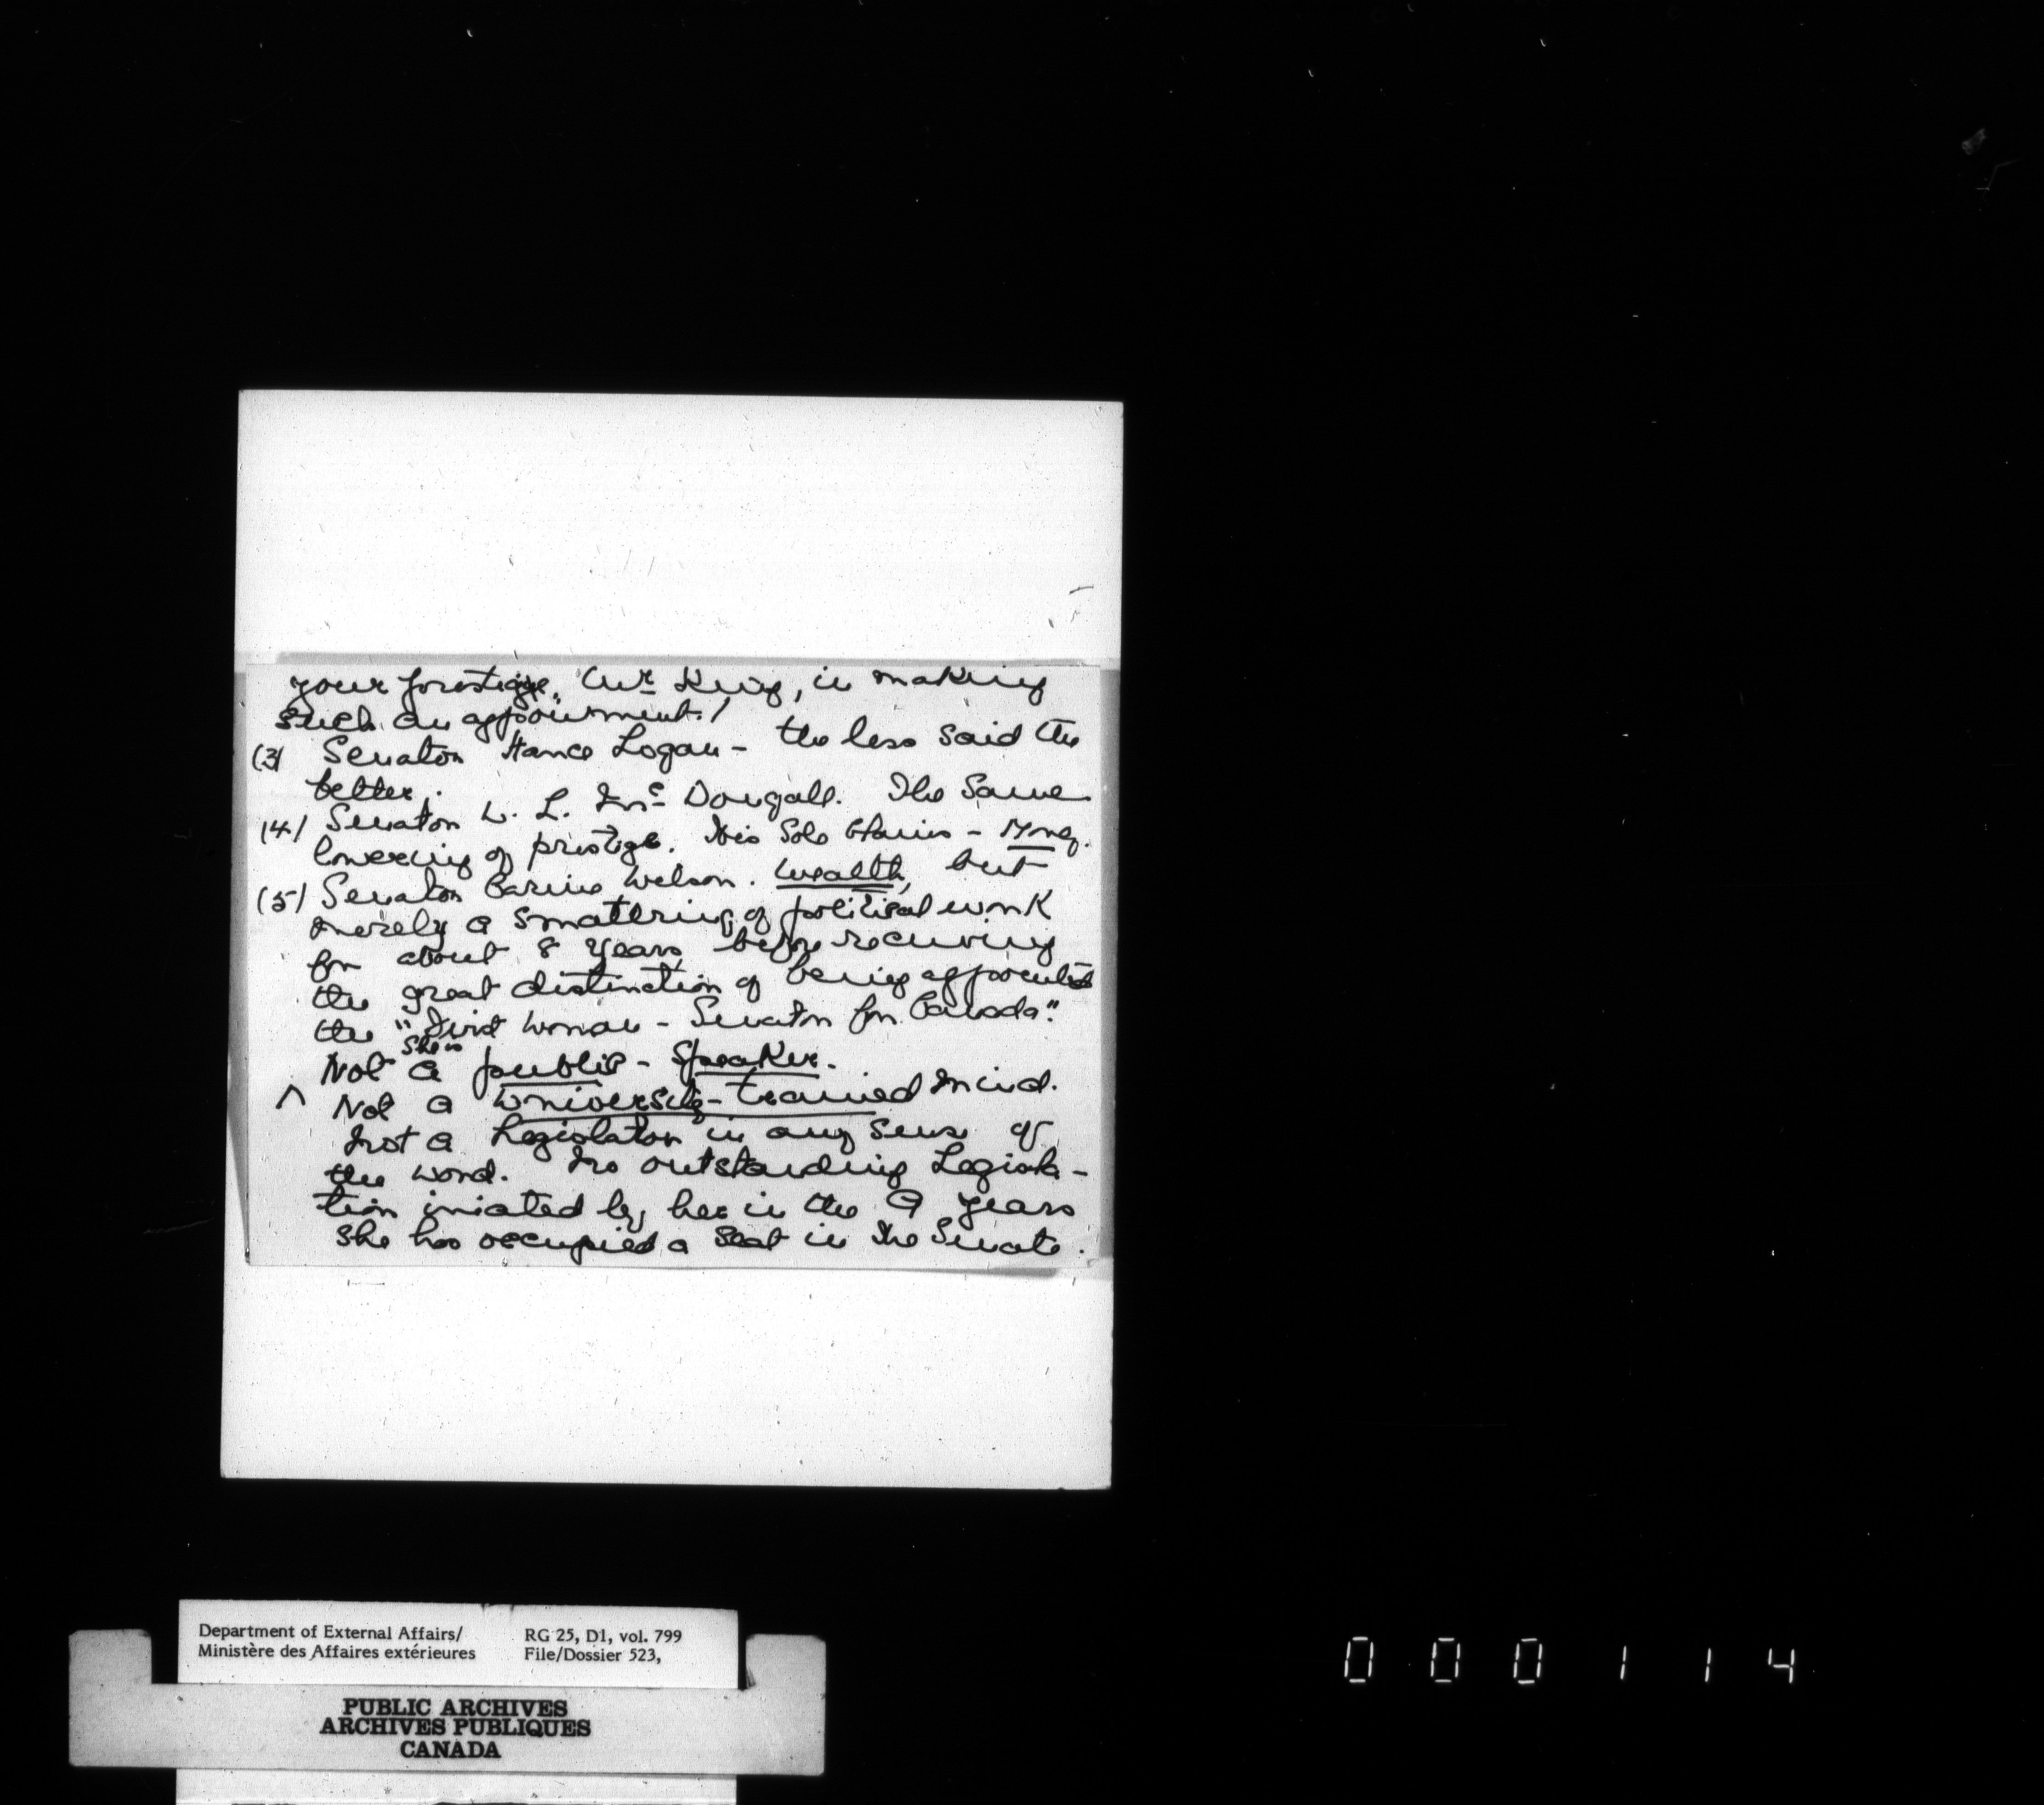 your prestige, Mr King, in making
such an appointment!
(3) Senator Hance Logan - the less said the
better.
(4) Senator W. L. Mc Dougall. The Same
lowering of prestige. His Sole Claim -
(5) Senator Carine Wilson. Wealth, but
merely a smattering of political work
for about 8 years before receiving
the great distinction of being appointed
the "First Woman - Senator for Canada".
She is
Not a public - Speaker.
^ Not a University - trained mind.
Not a Legislator in any sense of
the word. No outstanding Legisla-
tion iniated by her in the 9 years
She has occupied a Seat in the Senate.
Department of External Affairs/ RG 25, D1, vol. 799
Ministère des Affaires extérieures File/Dossier 523,
PUBLIC ARCHIVES
ARCHIVES PUBLIQUES
CANADA
000114